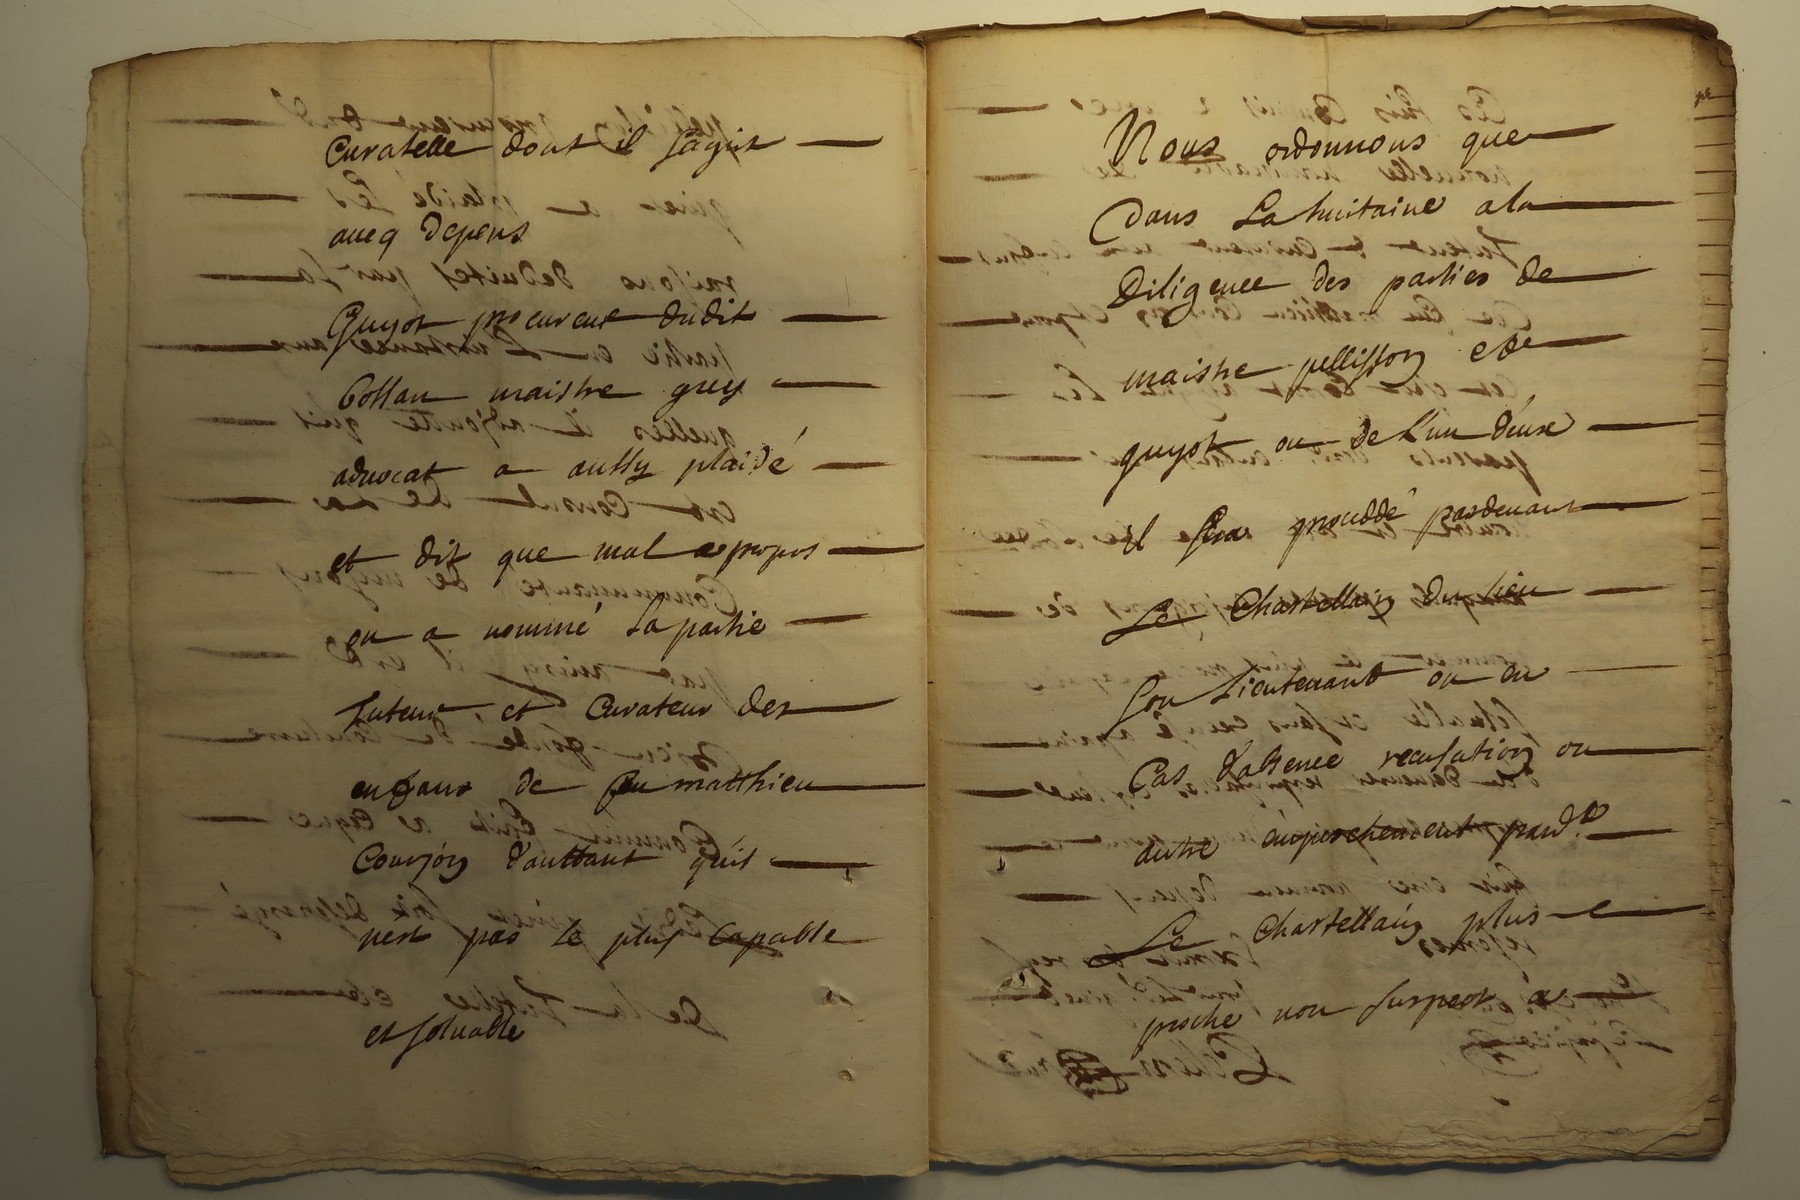 Curatelle dont il sagit
aueq depens
Guyot procureur dudit
Collan maistre guy
aduocat a aussy plaidé
et dit que mal apropos
on a nommé sa partie
tuteur et Curateur des
enfans de feu matthieu
Courjon d'auttant quil
nest pas le plus Capable
et soluable
Nous ordonnons que
Dans La huitaine a la
Diligence des parties de
maistre pellisson et de
guyot ou de L'un d'eux
il sera proceddé pardeuant
Le Chastellain du lieu
son Lieutenant ou en
Cas d'absence recusation ou
autre empeschement pard.t
Le Chastellain plus
proche non suspect a